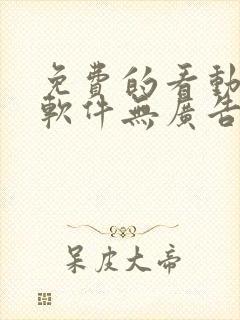 免費的看動
軟件無廣告
呆皮大帝